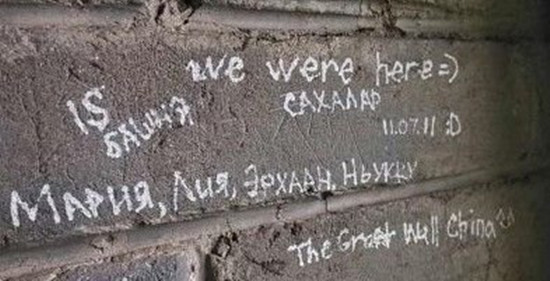 we were here =)
САХАЛАР
15 БАШНЯ
11.07.11 :D
МАРИЯ, Лия, ЭРХААН, НЬУКВУ
The Great Wall China ^^